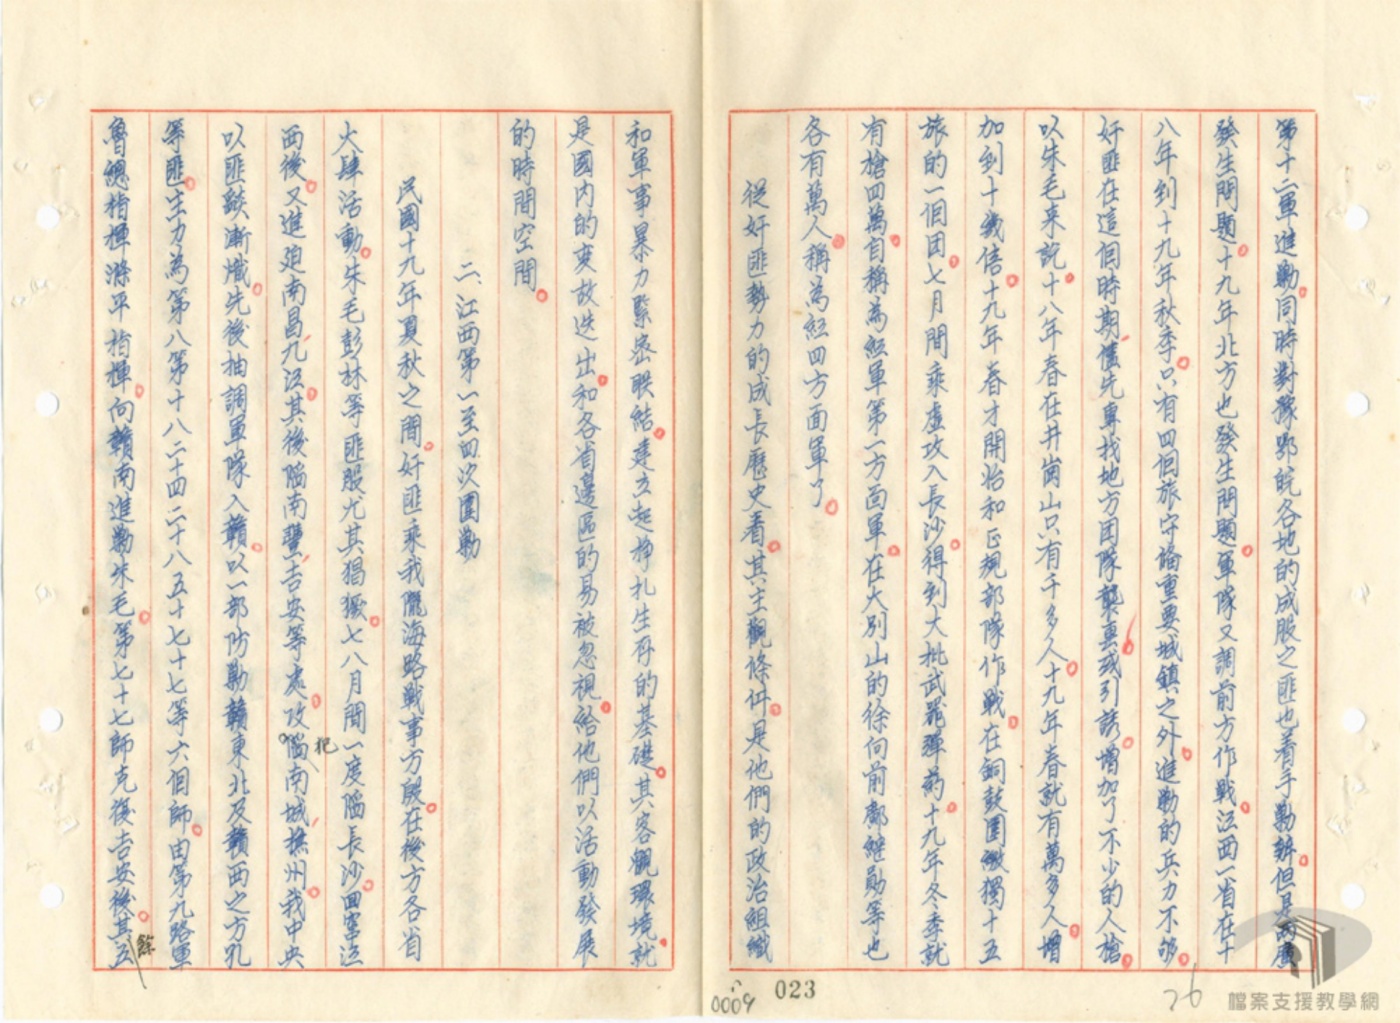 第十二軍進勦同時對豫鄂皖各地的成股之匪也着手勦辦。但是兩廣
發生問題。十九年北方也發生問題。軍隊又調前方作戰。江西一省在十
八年到十九年秋季。只有四個旅守備重要城鎮之外。進勦的兵力不够。
奸匪在這個時期。僅先專找地方團隊襲裹或引誘。增加了不少的人槍。
以朱毛来說。十八年春在井崗山只有千多人。十九年春就有萬多人。增
加到十幾倍。十九年春才開始和正規部隊作戰。在銅鼓圍繳獨十五
旅的一個团。七月間乘虛攻入長沙。得到大批武器彈葯。十九年冬季就
有槍四萬。自稱為紅軍第一方面軍。在大別山的徐向前鄺继勛等也
各有萬人。稱為紅四方面軍了。
從奸匪勢力的成長歷史看。其主觀條件。是他們的政治組織
和軍事暴力緊密联結。建立起掙扎生存的基礎。其客觀環境。就
是國内的变故迭出。和各省邊區的易被忽視。給他們以活動發展
的時間空間。
二、江西第一至四次圍勦
民國十九年夏秋之間。奸匪乘我隴海路戰事方殷。在後方各省
大肆活動。朱毛彭林等匪股尤其猖獗。七八月間一度陷長沙。回竄江
西後。又進迫南昌、九江。其後陷南豐、吉安等處。攻陷犯南城、撫州。我中央
以匪燄漸熾。先後抽調軍隊入贛。以一部防勦贛東北及贛西之方孔
等匪。主力為第八第十八二十四二十八五十七七十七等六個師。由第九路軍
魯總指揮滌平指揮。向贛南進勦朱毛。第七十七師克復吉安後。其餘五
023
0009
26
檔案支援教學網